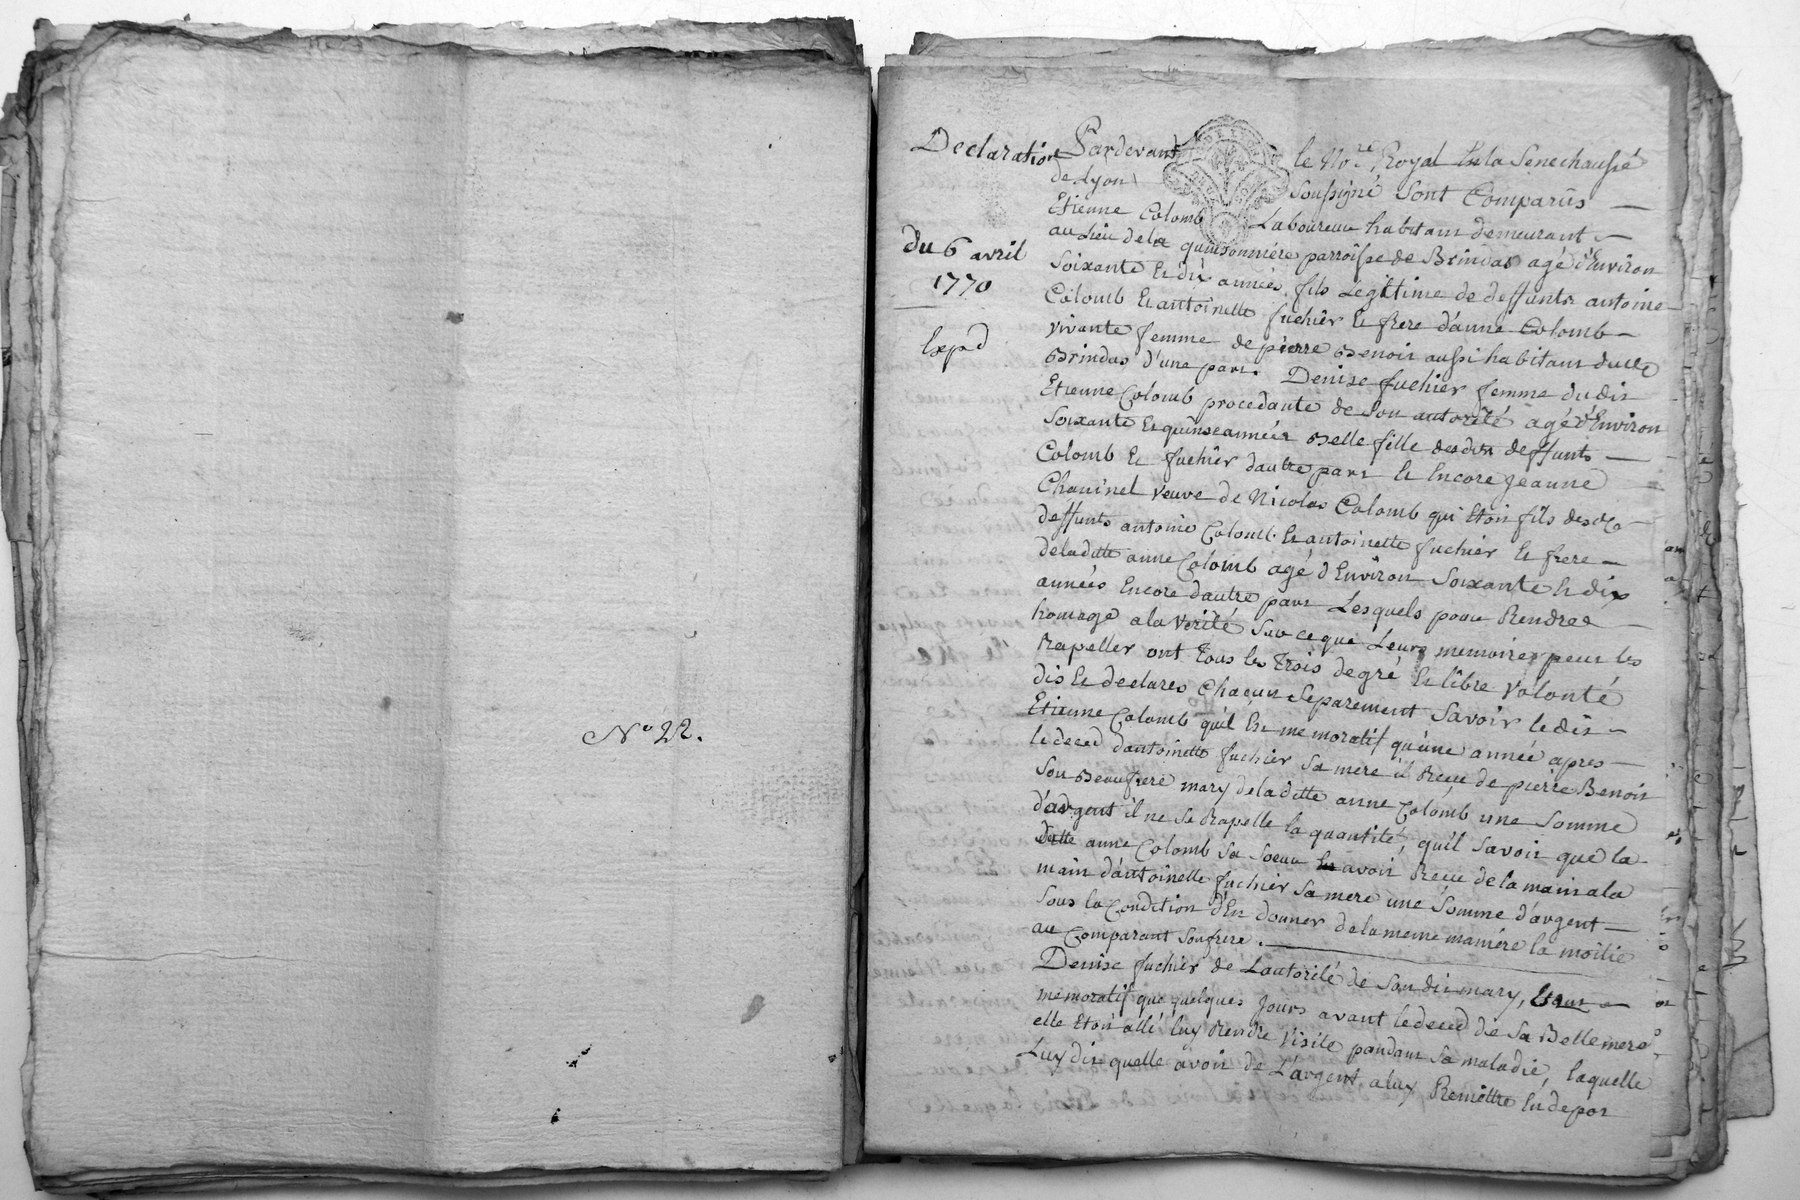 N° 22.
Declaration
du 6 avril
1770
Expd
Pardevant le No.re Royal En la Senechaussé
de Lyon soussigné sont Comparûs
Etienne Colomb Laboureur habitant demeurant
au Lieu dela quinsonniére parroisse de Brindas agé d'Environ
Soixante Et dix années, fils Legitime de deffunts antoine
Colomb Et antoinette fuchier Et frere d'anne Colomb
vivante femme de pierre Benoit aussi habitant dudt
Brindas d'une part. Denise fuchier femme dudit
Etienne Colomb procedante de Son autorité agé d'Environ
Soixante Et quinse années Belle fille desdits deffunts
Colomb Et fuchier dautre part Et Encore Jeanne
Chavinel veuve de Nicolas Colomb qui Etoit fils desd.
deffunts antoine Colomb Et antoinette fuchier Et frere
deladitte anne Colomb agé d'Environ Soixante Et dix
années Encore dautre part Lesquels pour Rendre
homage a la verité Sur ceque Leurs memoires peut les
Rapeller ont Tous les Trois degré Et libre volonté
dit Et declares Chacun Separement Savoir ledit
Etienne Colomb qu'il Est memoratif qu'une année apres
le deced d'antoinette fuchier sa mere il Recu de pierre Benoit
Son Beaufrere mary deladitte anne Colomb une Somme
d'argent il ne Se Rapelle la quantité, qu'il Savoit que la
ditte anne Colomb Sa Soeur avoit Recu dela main ala
main d'antoinette fuchier Sa mere une Somme d'argent
Sous la Condition d'En donner dela meme maniére la moitié
au Comparant Son frere.
Denise fuchier de Lautorité de Son dit mary, Etant
memoratif que quelques Jours avant le deced de Sa Belle mere
elle Etoit allé luy Rendre visite pandant Sa maladie, laquelle
Luy dit quelle avoit de L'argent a luy Remettre En depot